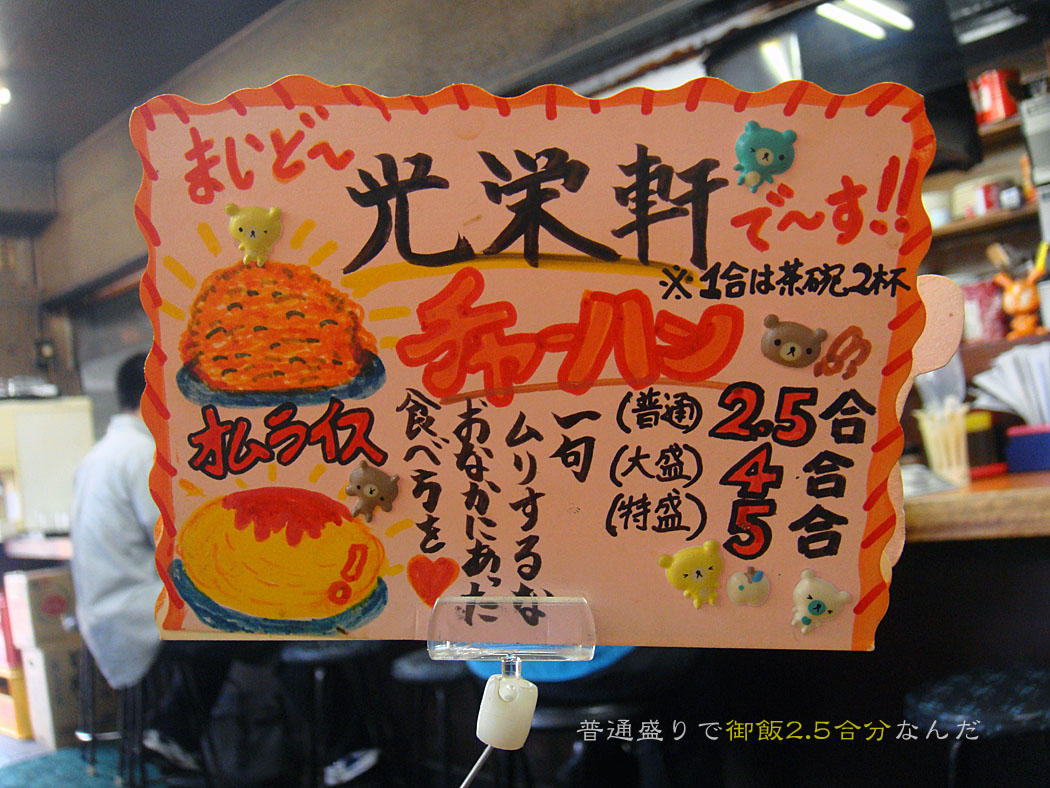 まいど〜
光栄軒
で〜す!!
※1合は茶碗2杯
チャーハン
オムライス
(普通) 2.5合
(大盛) 4合
(特盛) 5合
一句
ムリするな
おなかにあった
食べ方を
普通盛りで御飯2.5合分なんだ